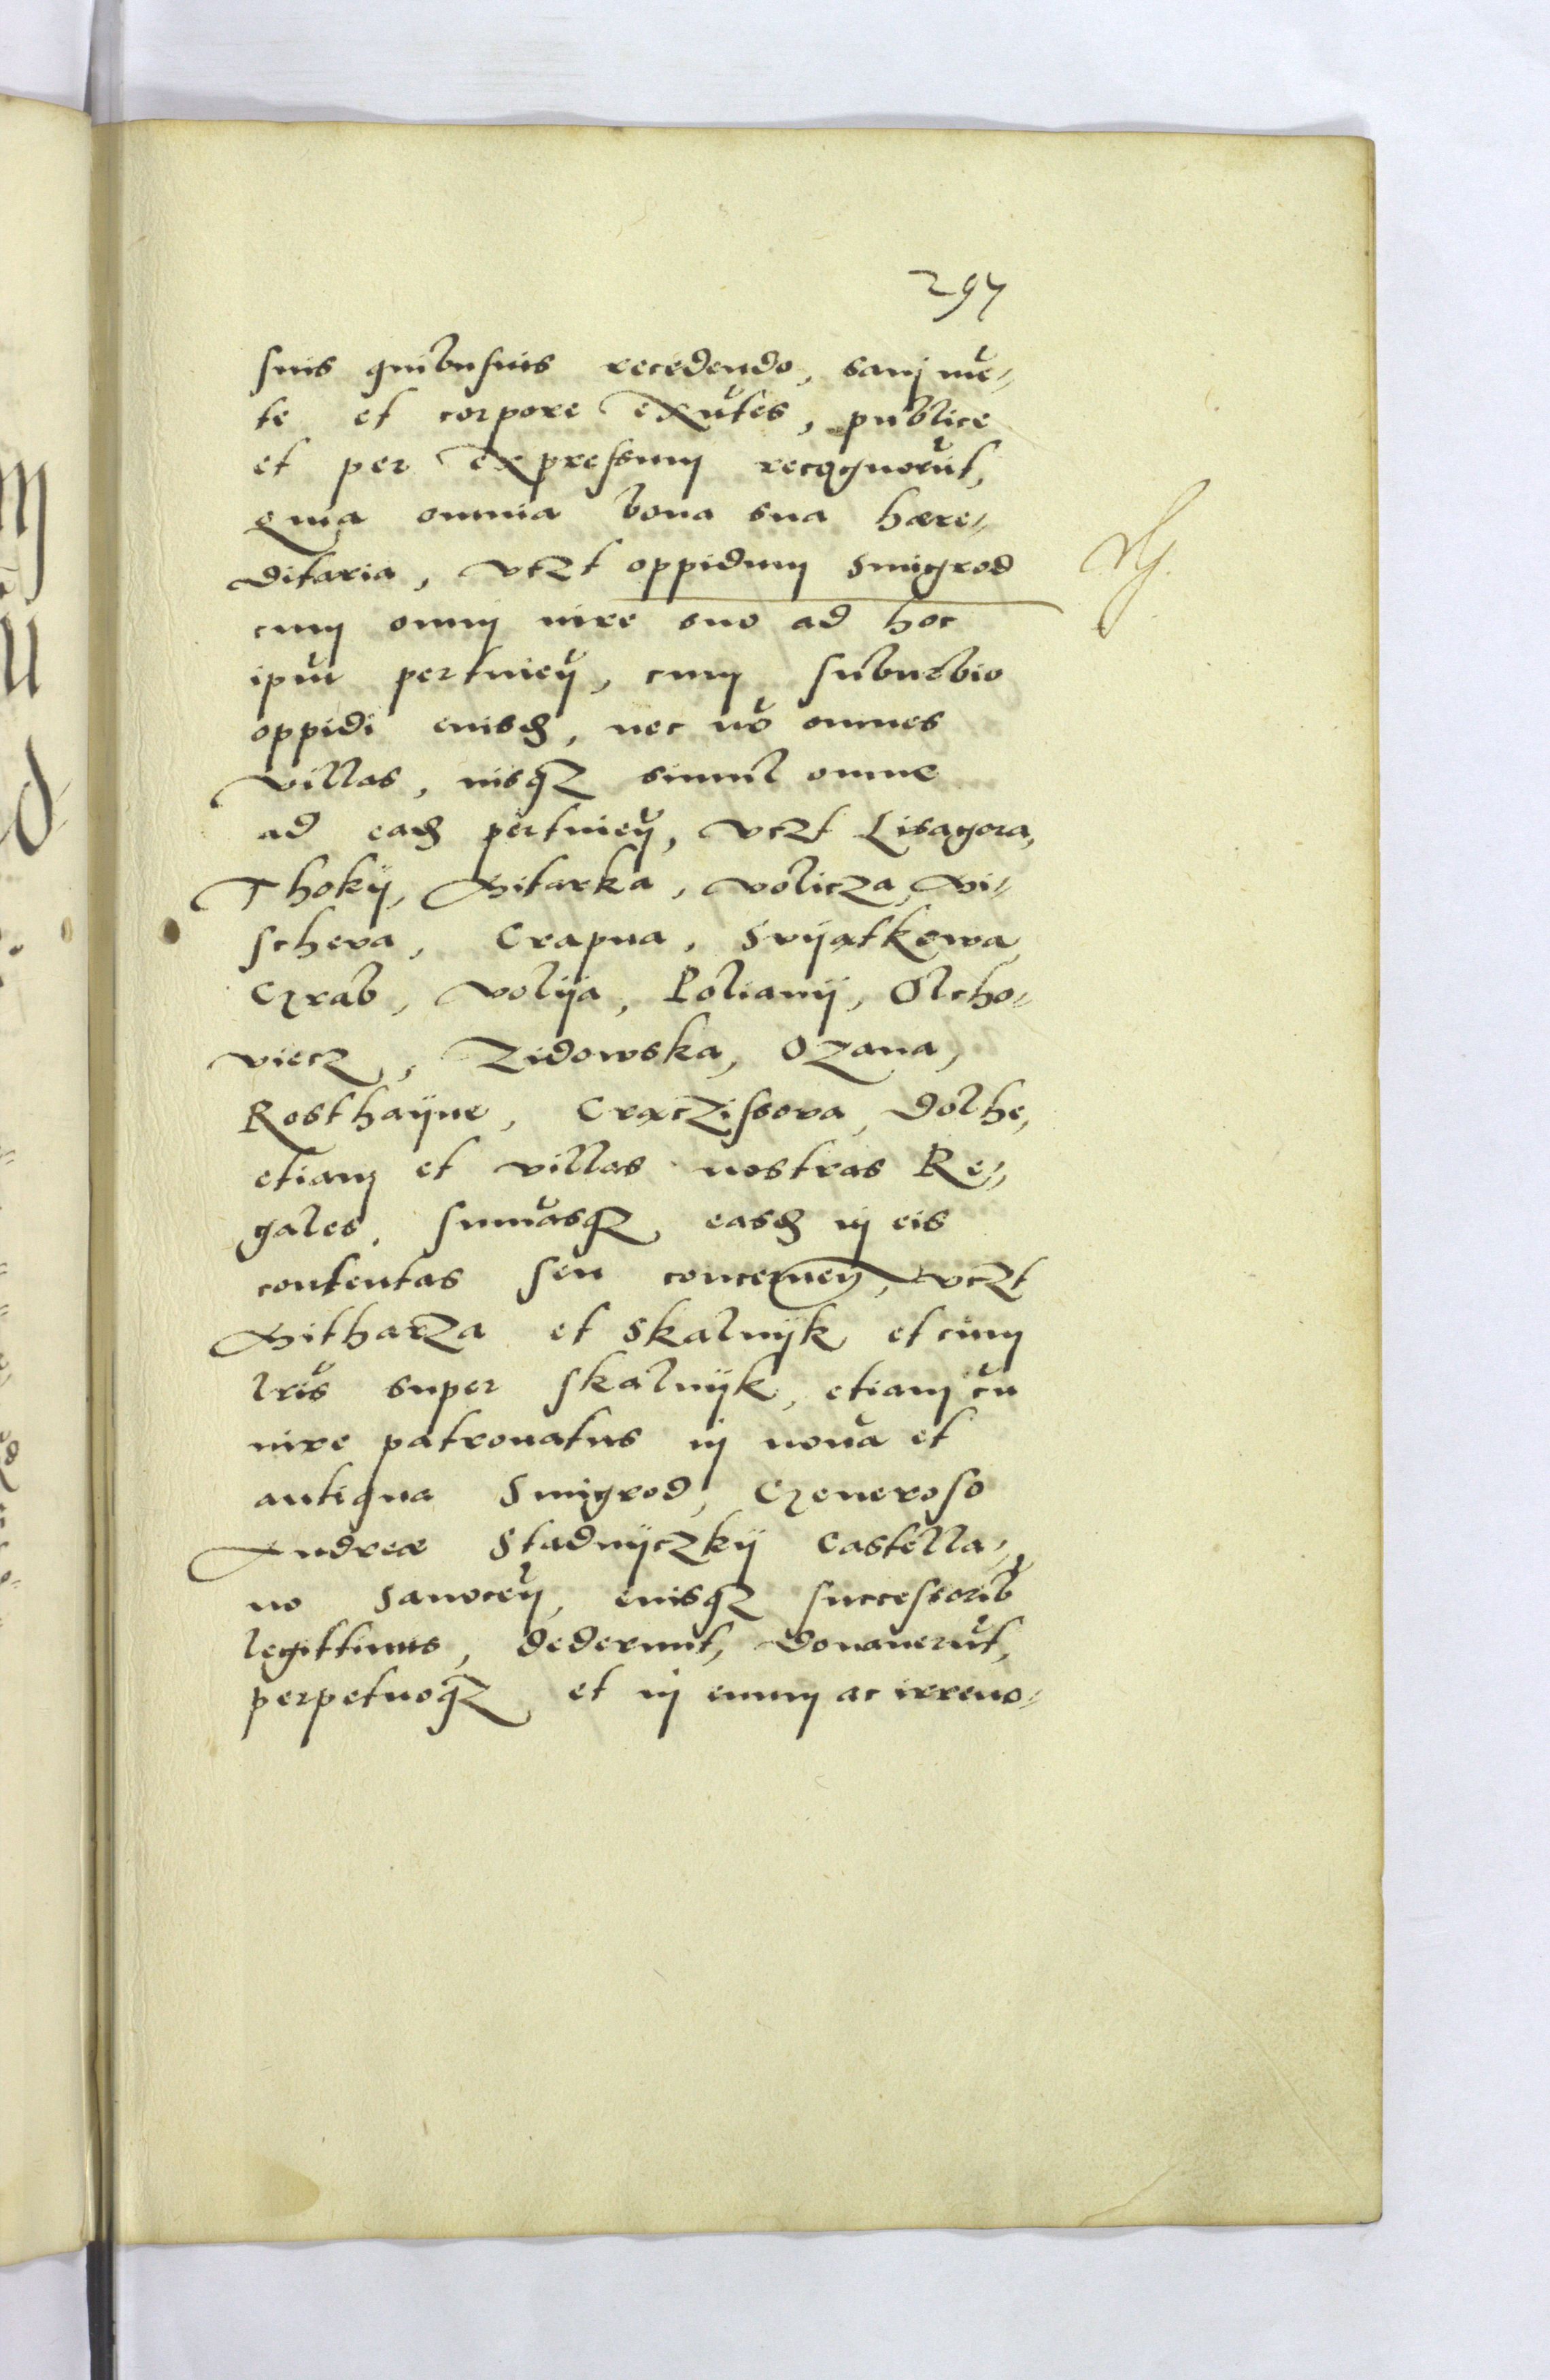 297
suis quibusuis recedendo, sani mē-
te et corpore exūtes, publice
et per expressum recognorūt,
Quia omnia bona sua hære-
ditaria, vczt oppidum Smigrod
cum omni iure suo ad hoc
ipm̄ pertineñ, cum suburbio
oppidi eiusd, nec nō omnes
villas, iusqz simul omne
ad ead pertineñ, vczt Lisagora,
Thokÿ, Mitarka, Volicza, Mi-
schova, Crapna, Svÿatkowa
Grab, Volÿa, Polianÿ, Olcho-
viecz, Zidowska, Ozana,
Rosthaÿne, Craczissova, Dolhe,
etiam et villas nostras Re-
gales, sum̄asqz easd in eis
contentas seu concerneñ, vczt
Mitharza et Skalnÿk et cum
lr̄is super Skalnÿk, etiam cū
iure patronatus in noua et
antiqua Smigrod, Generoso
Andreæ Stadnÿczkÿ Castella-
no Sanoceñ, eiusqz successorib
legittimis, dederunt, donauerūt,
perpetuoqz et in euum ac irreuo-